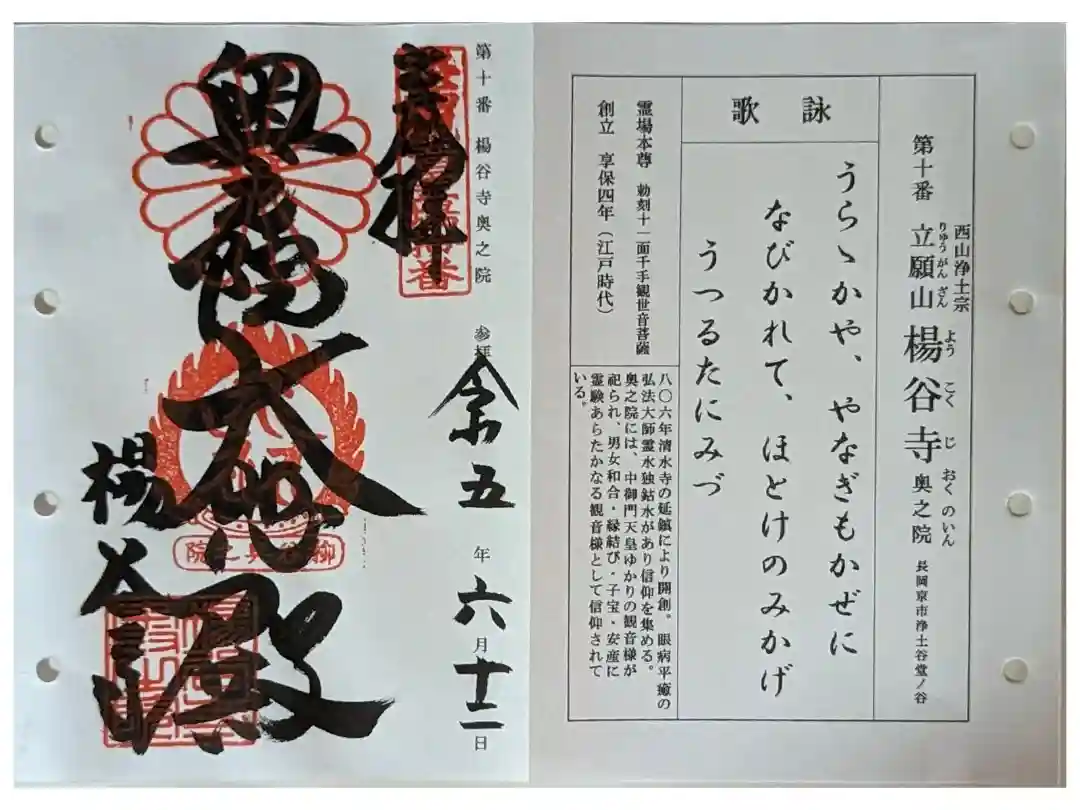 第十番 立願山 楊谷寺 奥之院 長岡京市浄土谷堂ノ谷
西山浄土宗
りゅうがんざん ようこくじ おくのいん
詠歌
うらゝかや、やなぎもかぜに
なびかれて、ほとけのみかげ
うつるたにみづ
霊場本尊 勅刻十一面千手観世音菩薩
創立 享保四年(江戸時代)
八〇六年清水寺の延鎮により開創。眼病平癒の
弘法大師霊水独鈷水があり信仰を集める。
奥之院には、中御門天皇ゆかりの観音様が
祀られ、男女和合・縁結び・子宝・安産に
霊験あらたかなる観音様として信仰されて
いる。
第十番 楊谷寺奥之院 参拝
令和五年六月十一日
奉拝
奥之院大悲殿
柳谷奥之院
楊谷寺